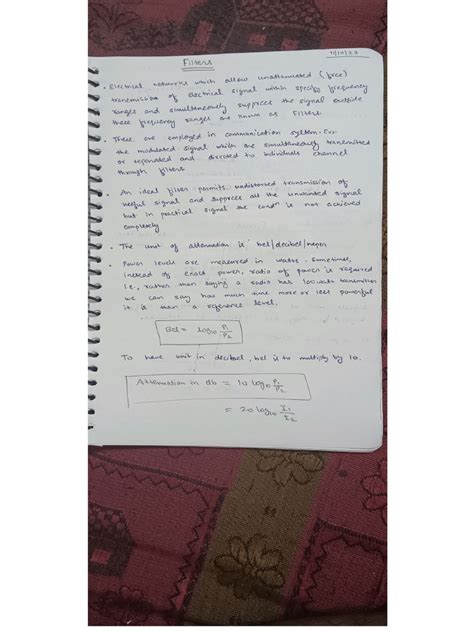 Filters
• Electrical networks which allow unattenuated (free)
transmission of electrical signal within specify frequency
ranges and simultaneously suppress the signal outside
these frequency ranges are known as Filters.
• These are employed in communication system. For
the modulated signal which are simultaneously transmitted
or separated and directed to individuals channel
through filters
• An ideal filter permits undistorted transmission of
useful signal and suppress all the unwanted signal
but in practical signal the condn is not achieved
completely.
• The unit of attenuation is bel/decibel/neper
• Power levels are measured in watts. Sometimes,
instead of exact power, ratio of power is required
i.e., rather than saying a radio has 100 watts transmitter
we can say how much time more or less powerful
it is than a reference level.
Bel = log₁₀ P₁/P₂
To have unit in decibel, bel is to multiply by 10.
Attenuation in db = 10 log₁₀ P₁/P₂
= 20 log₁₀ I₁/I₂